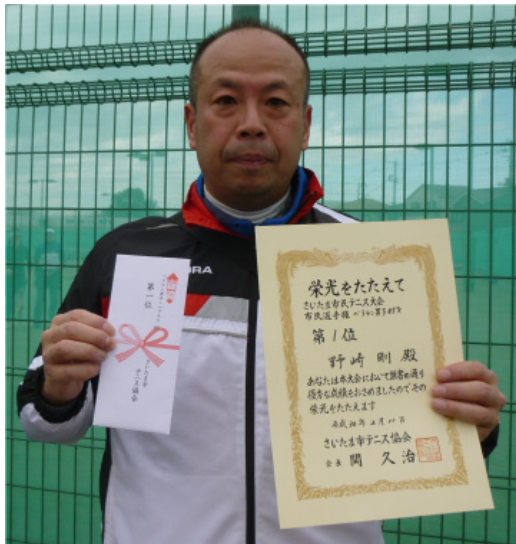 第一位
さいたま市
テニス協会
栄光をたたえて
さいたま市民テニス大会
市民選手権
第1位
野崎剛殿
あなたは本大会において頭書の通り
優秀な成績をおさめましたのでその
栄光をたたえます
さいたま市テニス協会
会長 関久治